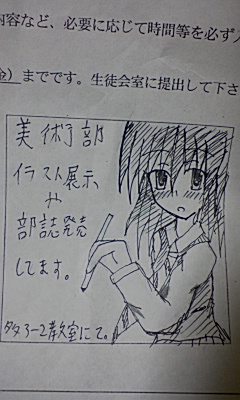 内容など、必要に応じて時間等を必ず
金）までです。生徒会室に提出して下さ
美術部
イラスト展示
や
部誌発売
してます。
3-2教室にて。